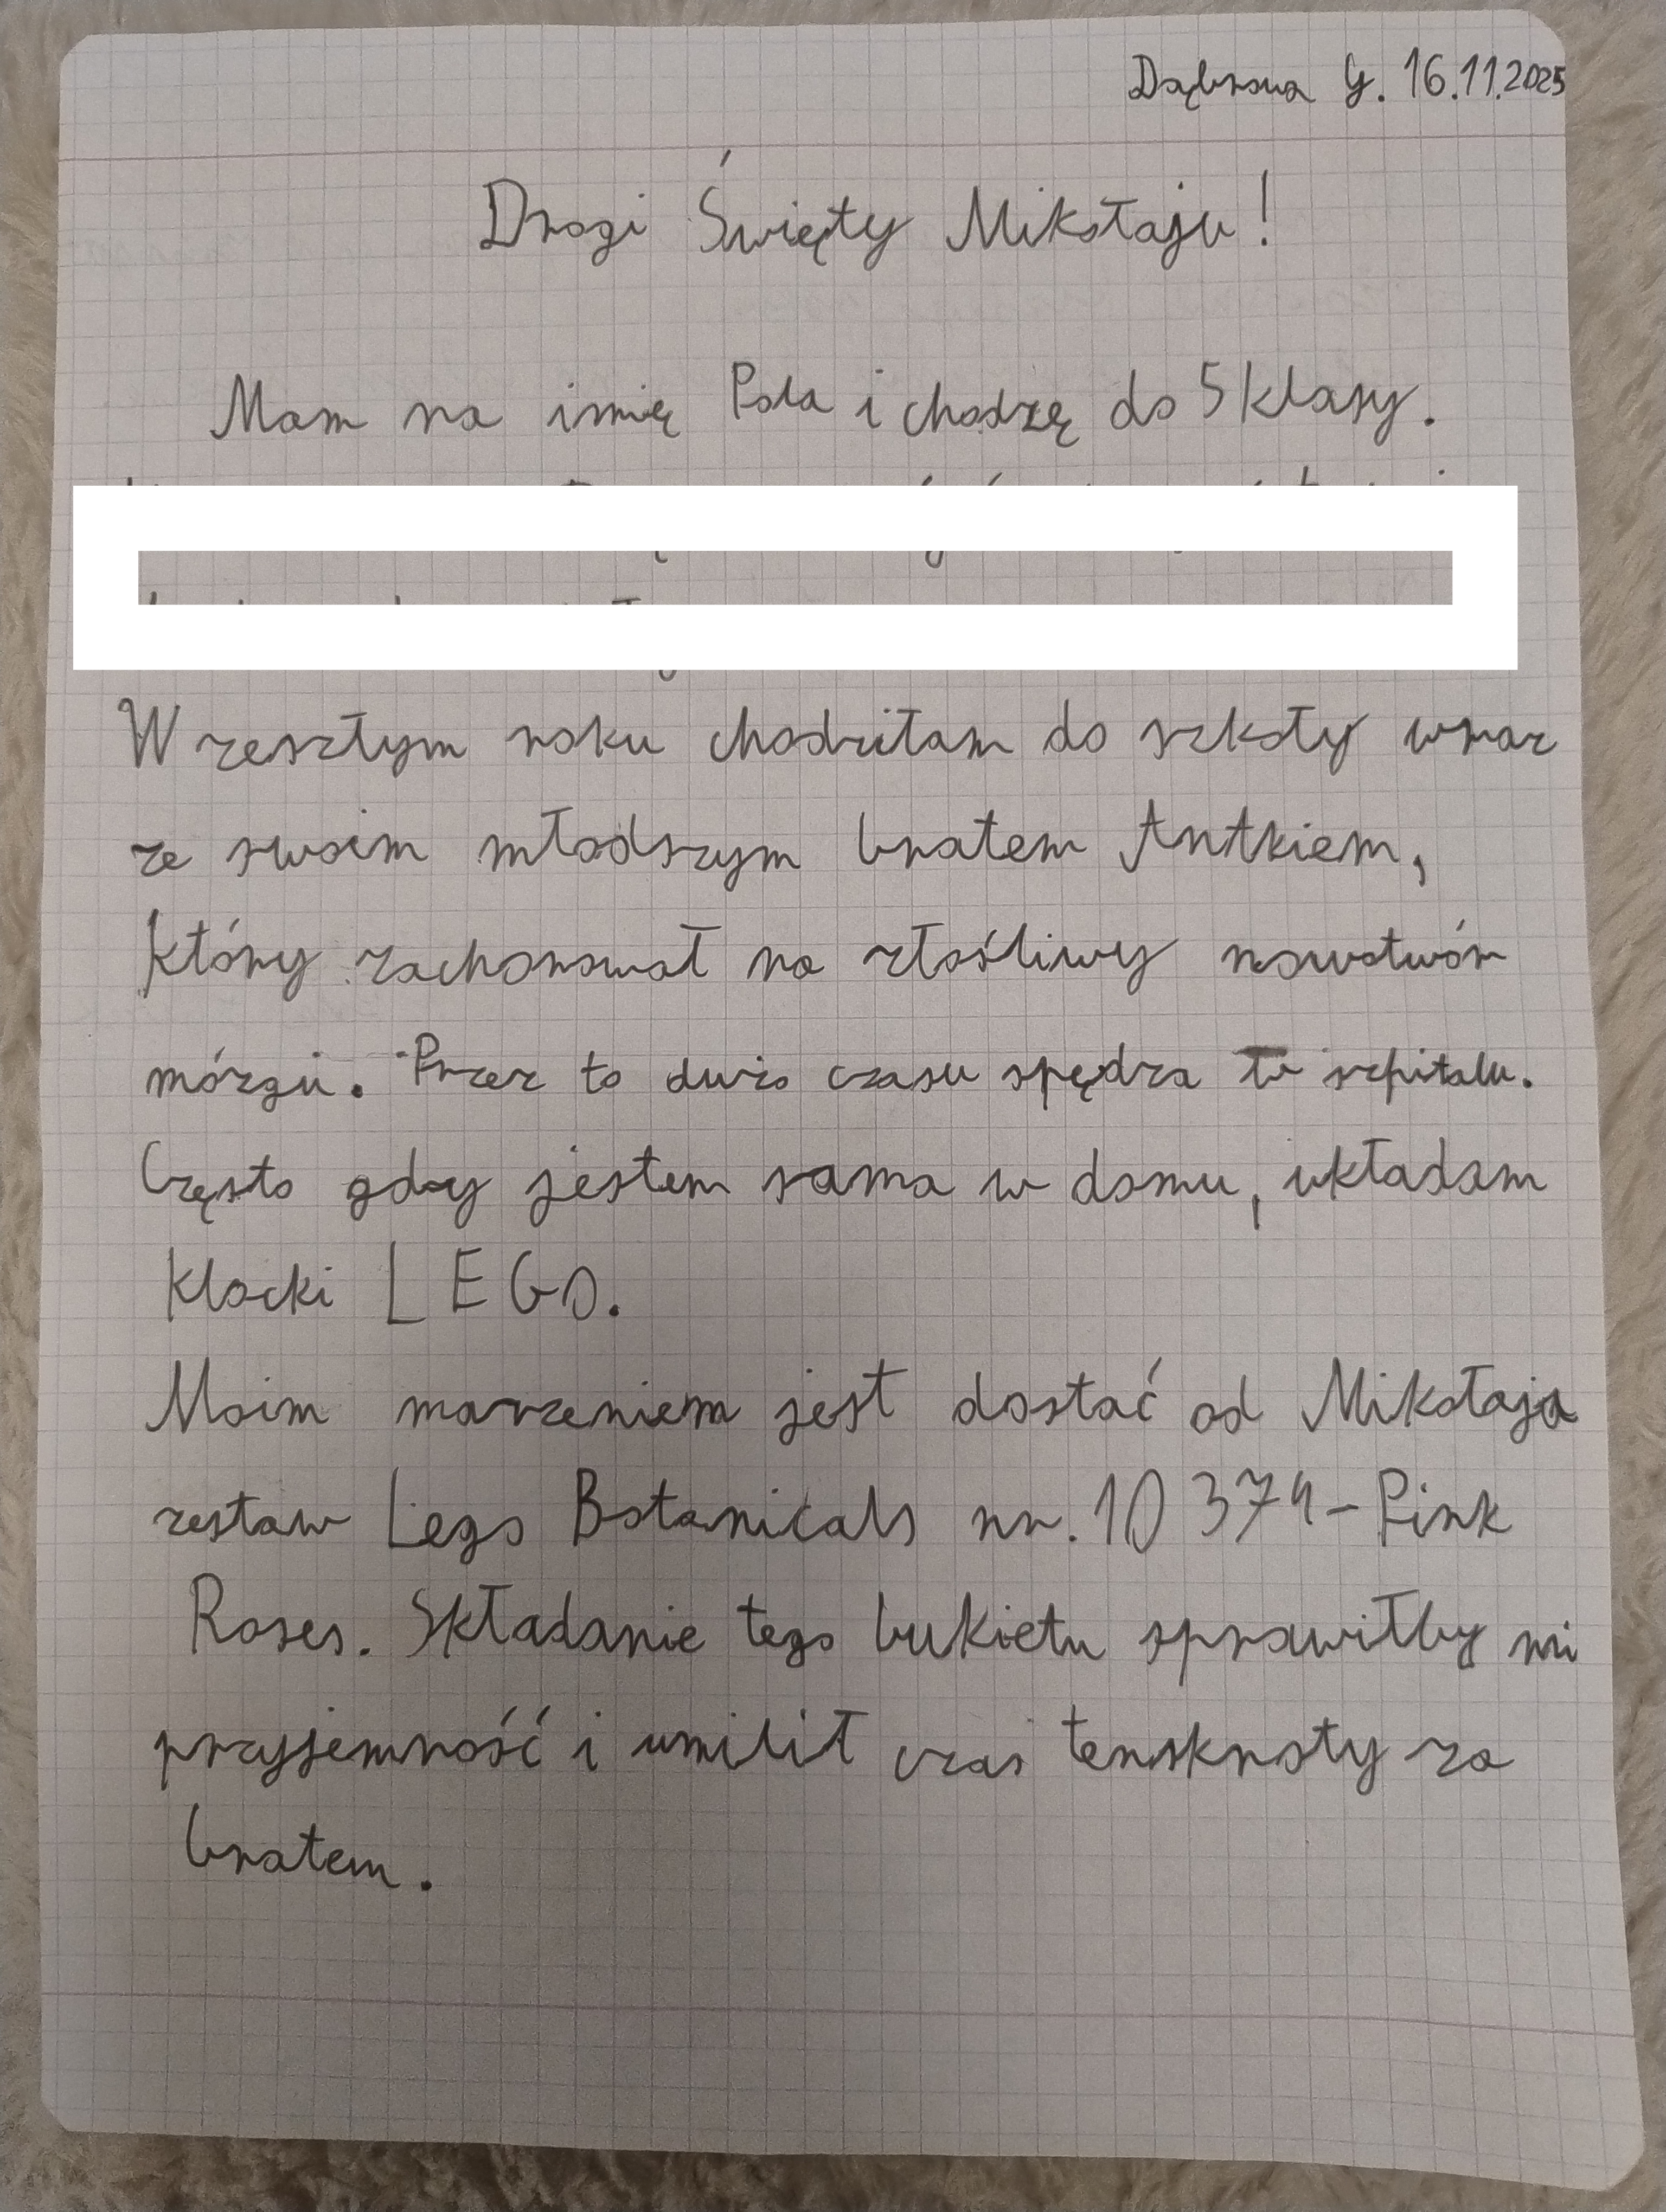 Dąbrowa G. 16.11.2025
Drogi Święty Mikołaju!
Mam na imię Pola i chodzę do 5 klasy.
W zeszłym roku chodziłam do szkoły wraz
ze swoim młodszym bratem Antkiem,
który zachorował na złośliwy nowotwór
mózgu. Przez to dużo czasu spędza w szpitalu.
Często gdy jestem sama w domu, układam
klocki LEGO.
Moim marzeniem jest dostać od Mikołaja
zestaw Lego Botanicals nr. 10374-Pink
Roses. Składanie tego bukietu sprawiłby mi
przyjemność i umilił czas tensknoty za
bratem.